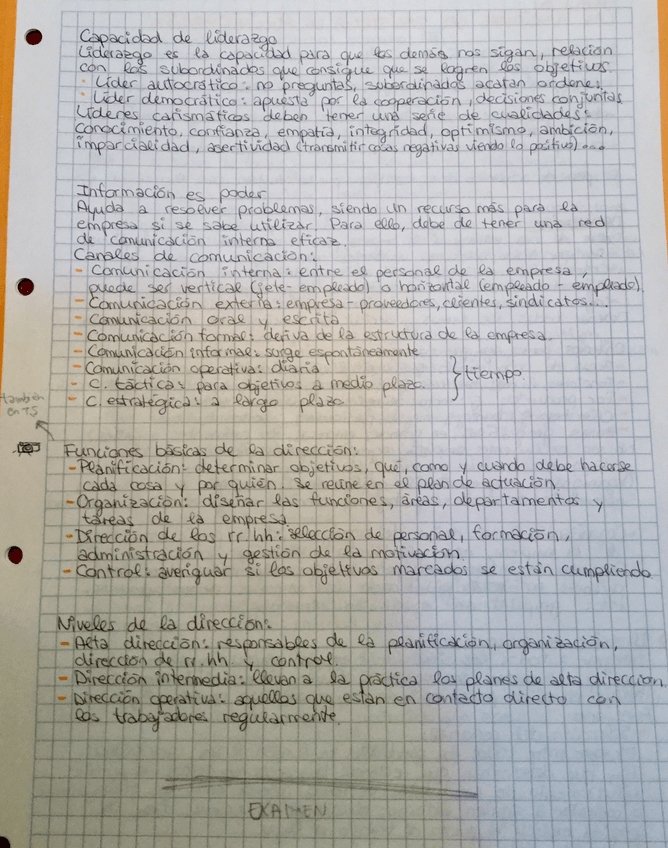 Capacidad de liderazgo
Liderazgo es la capacidad para que los demás nos sigan, relación
con los subordinados que consigue que se logren los objetivos.
- Líder autocrático: no preguntas, subordinados acatan ordenes.
- Líder democrático: apuesta por la cooperación, decisiones conjuntas
Líderes carismáticos deben tener una serie de cualidades:
conocimiento, confianza, empatía, integridad, optimismo, ambición,
imparcialidad, asertividad (transmitir cosas negativas viendo lo positivo)...
Información es poder
Ayuda a resolver problemas, siendo un recurso más para la
empresa si se sabe utilizar. Para ello, debe de tener una red
de comunicación interna eficaz.
Canales de comunicación:
- Comunicación interna: entre el personal de la empresa,
puede ser vertical (jefe-empleado) o horizontal (empleado - empleado)
- Comunicación externa: empresa - proveedores, clientes, sindicatos...
- Comunicación oral y escrita
- Comunicación formal: deriva de la estructura de la empresa.
- Comunicación informal: surge espontáneamente
- Comunicación operativa: diaria
- C. táctica: para objetivos a medio plazo.
- C. estratégica: a largo plazo
} tiempo.
también
en T.5
Funciones básicas de la dirección:
- Planificación: determinar objetivos, qué, como y cuándo debe hacerse
cada cosa y por quién. Se reúne en el plan de actuación.
- Organización: diseñar las funciones, áreas, departamentos y
tareas de la empresa
- Dirección de los rr.hh: selección de personal, formación,
administración y gestión de la motivación.
- Control: averiguar si los objetivos marcados se están cumpliendo
Niveles de la dirección:
- Alta dirección: responsables de la planificación, organización,
dirección de rr.hh y control.
- Dirección intermedia: llevan a la práctica los planes de alta dirección
- Dirección operativa: aquellos que están en contacto directo con
los trabajadores regularmente.
EXAMEN